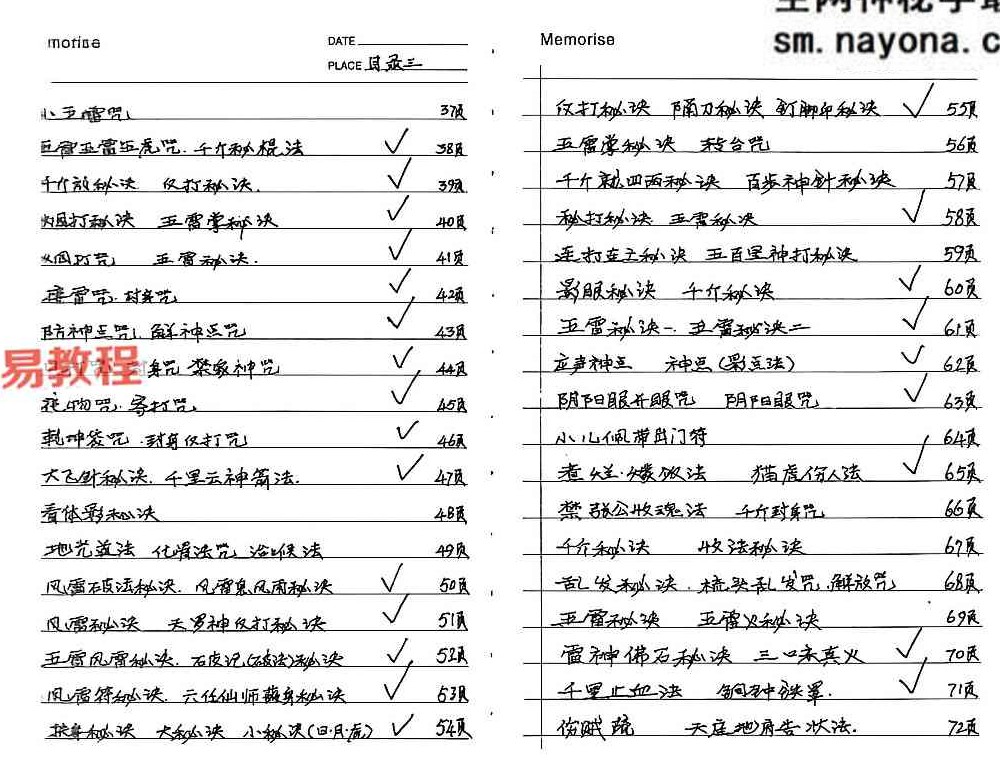 morise
DATE
PLACE 目录三
小五雷咒 37页
巨雷五雷五虎咒. 千斤秘棍法 38页
千斤放秘决 仪打秘决. 39页
烟打秘决 五雷掌秘决 40页
烟打咒 五雷秘决. 41页
接雷咒. 封身咒 42页
防神点咒. 解神点咒 43页
身咒 禁象神咒 44页
易教程
花物咒. 寄打咒 45页
乾坤袋咒. 封身仪打咒 46页
大飞针秘决. 千里云神箭法. 47页
看体影秘决 48页
地光盖法 化骨法咒 治喉法 49页
风雷破法秘决. 风雷息风雨秘决 50页
风雷秘决 天罗神仪打秘决 51页
五雷风雷秘决. 石皮记(破法)秘决 52页
风雷符秘决. 六任仙师藏身秘决 53页
扶身秘决 大秘决 小秘决(日.月.虎) 54页
空网神秘学最
sm.nayona.c
Memorise
仪打秘决 隔刀秘决 钉脚印秘决 55页
五雷掌秘决 转台咒 56页
千斤 四两秘决 百步神针秘决 57页
秘打秘决 五雷秘决 58页
连打在主秘决 五百星神打秘决 59页
影眼秘决 千斤秘决 60页
五雷秘决一. 五雷秘决二 61页
应声神点 神点(彩点法) 62页
阴阳眼开眼咒 阴阳眼咒 63页
小儿佩带出门符 64页
煮 . 饭法 猫虎伤人法 65页
禁张公收魂法 千斤封身咒 66页
千斤秘决 收法秘决 67页
乱发秘决. 梳头乱发咒. 解放咒 68页
五雷秘决 五雷火秘决 69页
雷神佛石秘决 三口来真火 70页
千里止血法 铜钟铁罩. 71页
伤贼疏 天庭地府告状法. 72页